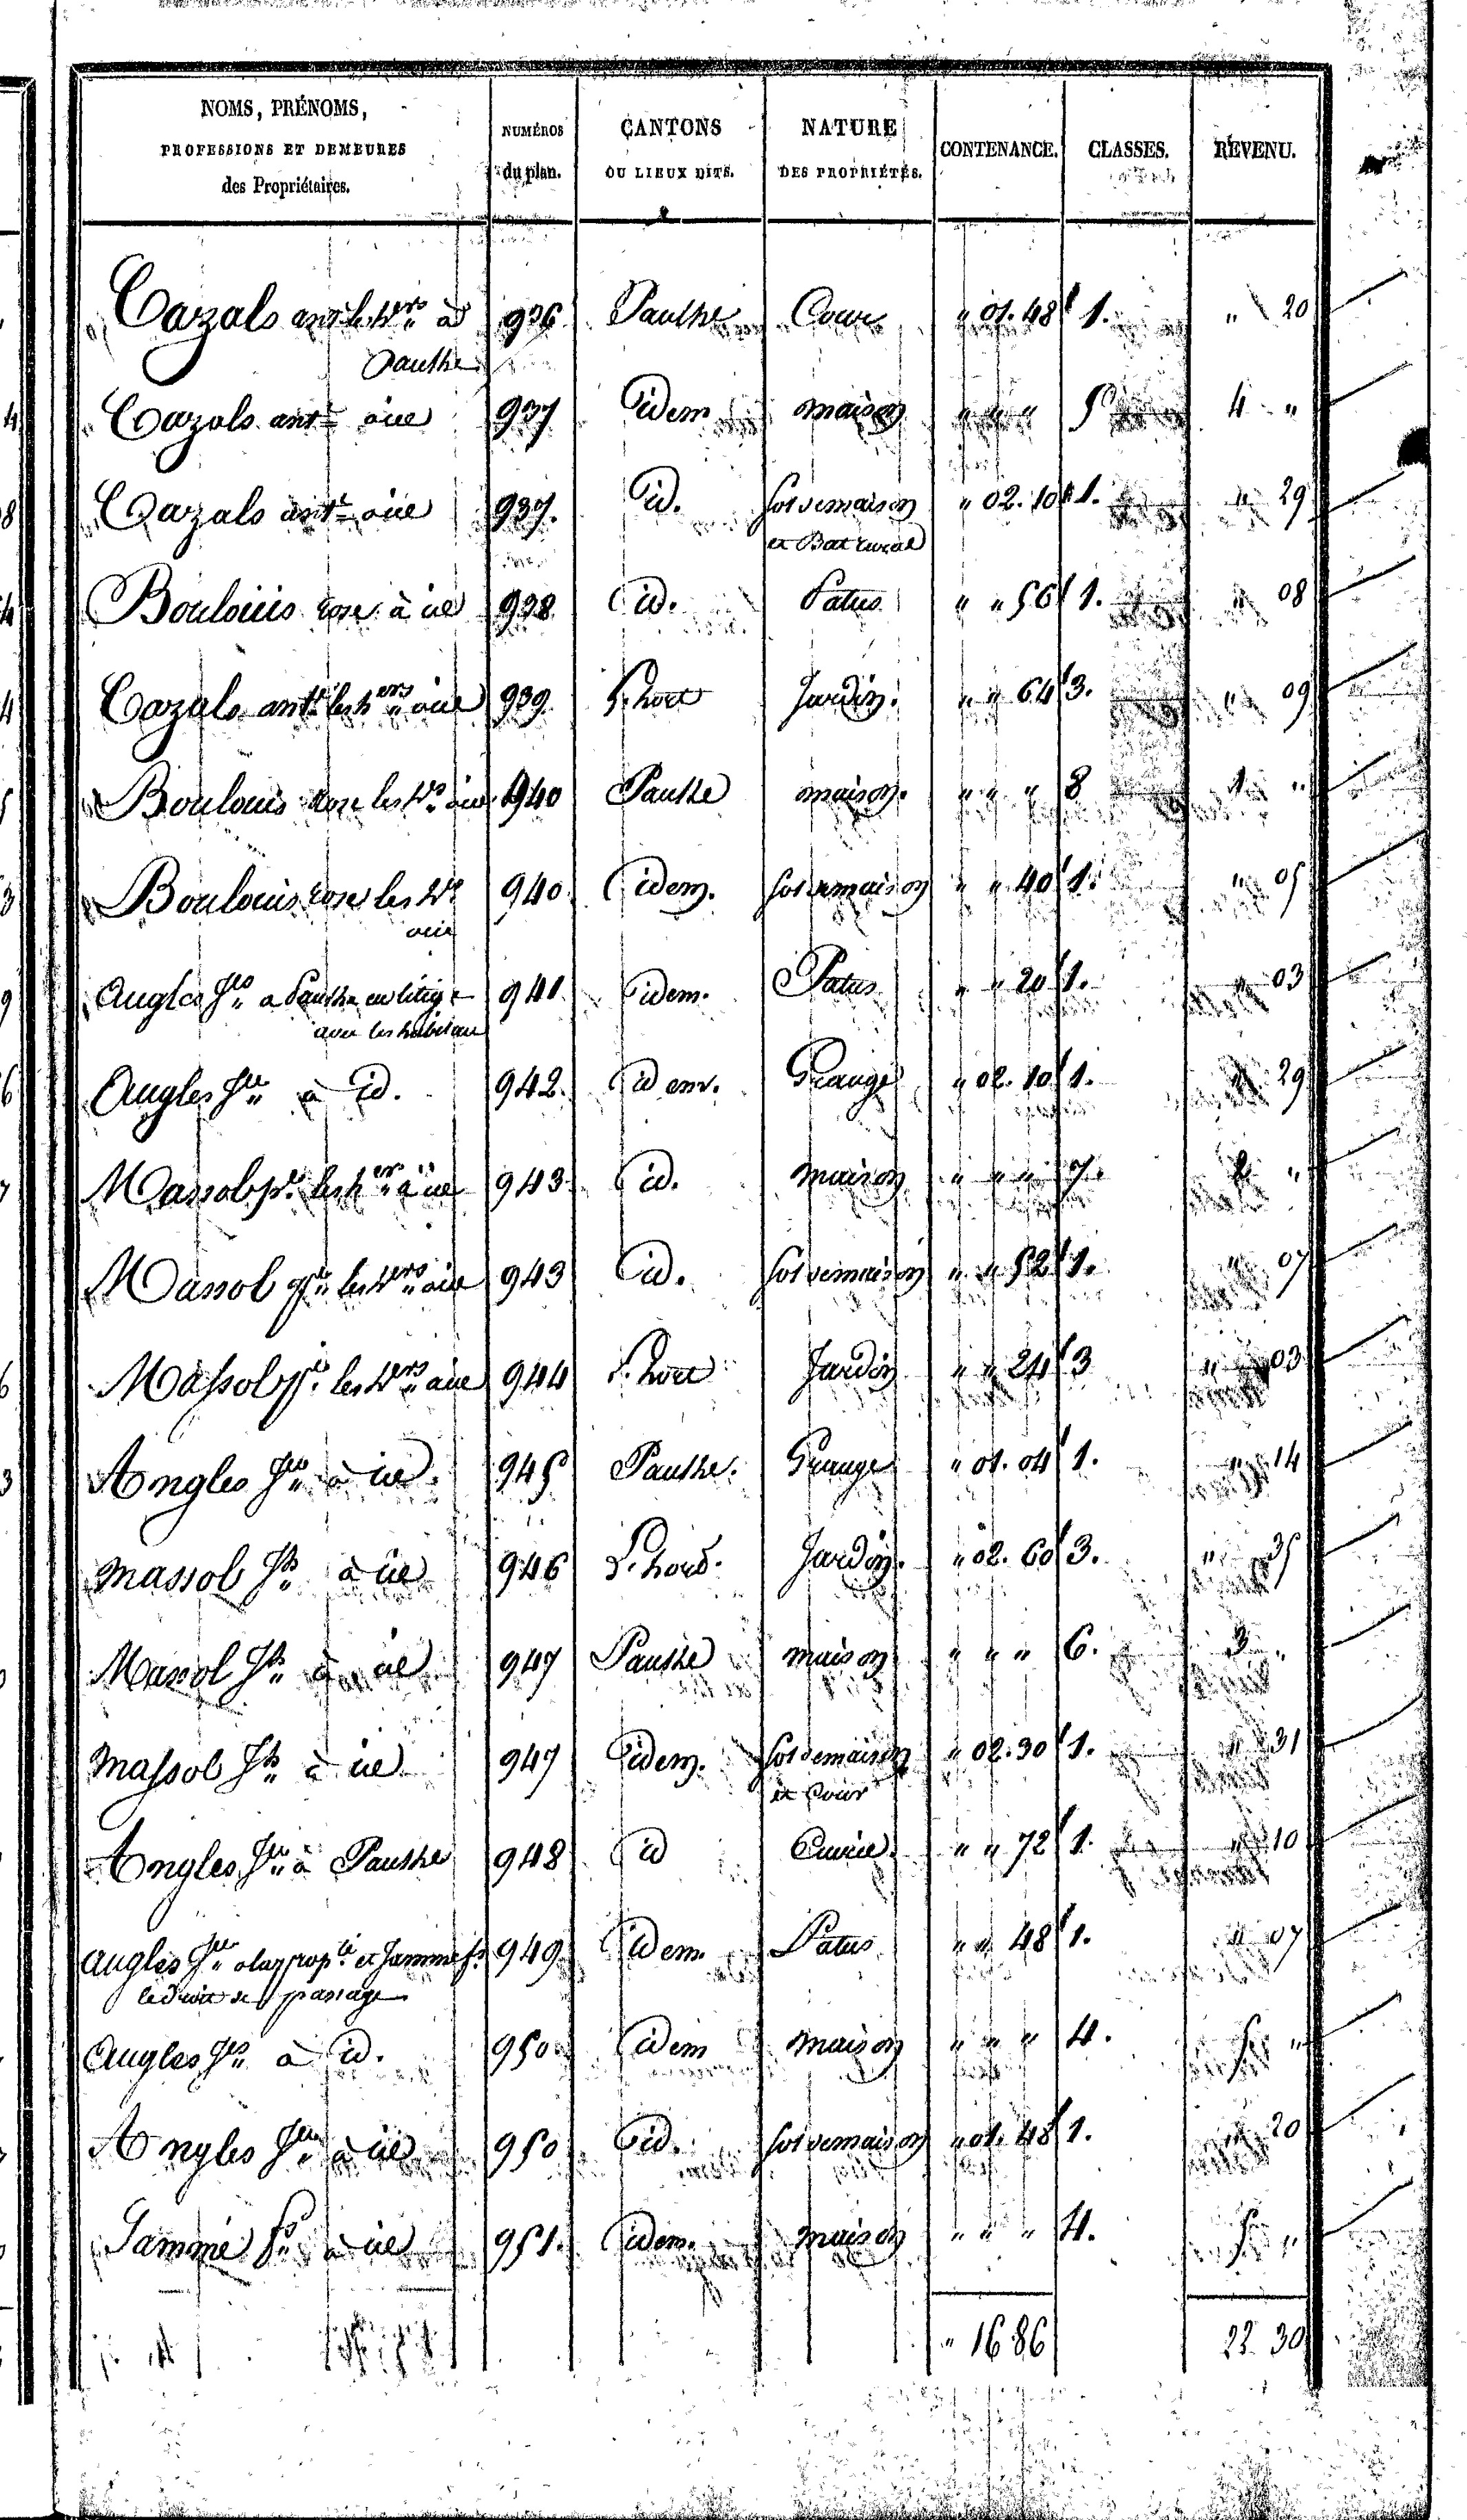 NOMS, PRÉNOMS, PROFESSIONS ET DEMEURES des Propriétaires. NUMÉROS du plan. CANTONS OU LIEUX DITS. NATURE DES PROPRIÉTÉS. CONTENANCE. CLASSES. REVENU.
Cazals ant.e les h.ers à 936 Pauthe Cour " 01. 48 1. " 20
Pauthe
Cazals ant.e à id 937 idem maison " " " 5 4 "
Cazals ant.e à id 937. id. sol de maison " 02. 10 1. " 29
et Bat rural
Boulouis rose à id 938 id. Patus " " 56 1. " 08
Cazals ant.e les h.ers à id 939 L'hort Jardin. " " 64 3. " 09
Boulouis rose les h.rs à id 940 Pauthe maison. " " " 8 1 "
Boulouis rose les h.rs 940 idem. sol de maison " " 40 1. " 05
à id
Angles J.es a Pauthe en litige 941 idem. Patus " " 20 1. " 03
avec les habitans
Angles J.es à id. 942. idem. Grange " 02. 10 1. " 29
Massol les h.ers à id 943 id. maison " " " 7. 2 "
Massol les h.ers à id 943 id. sol de maison " " 52 1. " 07
Massol les h.ers à id 944 L'hort Jardin " " 24 3 " 03
Angles J.es à id. 945 Pauthe. Grange " 01. 04 1. " 14
Massol J.h à id 946 L'hort. Jardin. " 02. 60 3. " 35
Massol J.h à id 947 Pauthe maison " " " 6. 3 "
Massol J.h à id 947 idem. sol de maison " 02. 30 1. " 31
et Cour
Angles J.es à Pauthe 948 id Ecurie " " 72 1. " 10
Angles J.es a la prop.té et Jamme f.s 949 idem Patus " " 48 1. " 07
le droit de passage
Angles J.es à id. 950 idem maison " " " 4. 5 "
Angles J.es à id 950 id. sol de maison " 01. 48 1. " 20
Jamme f.s à id 951. idem. maison " " " 4. 5 "
" 16 86 22 30